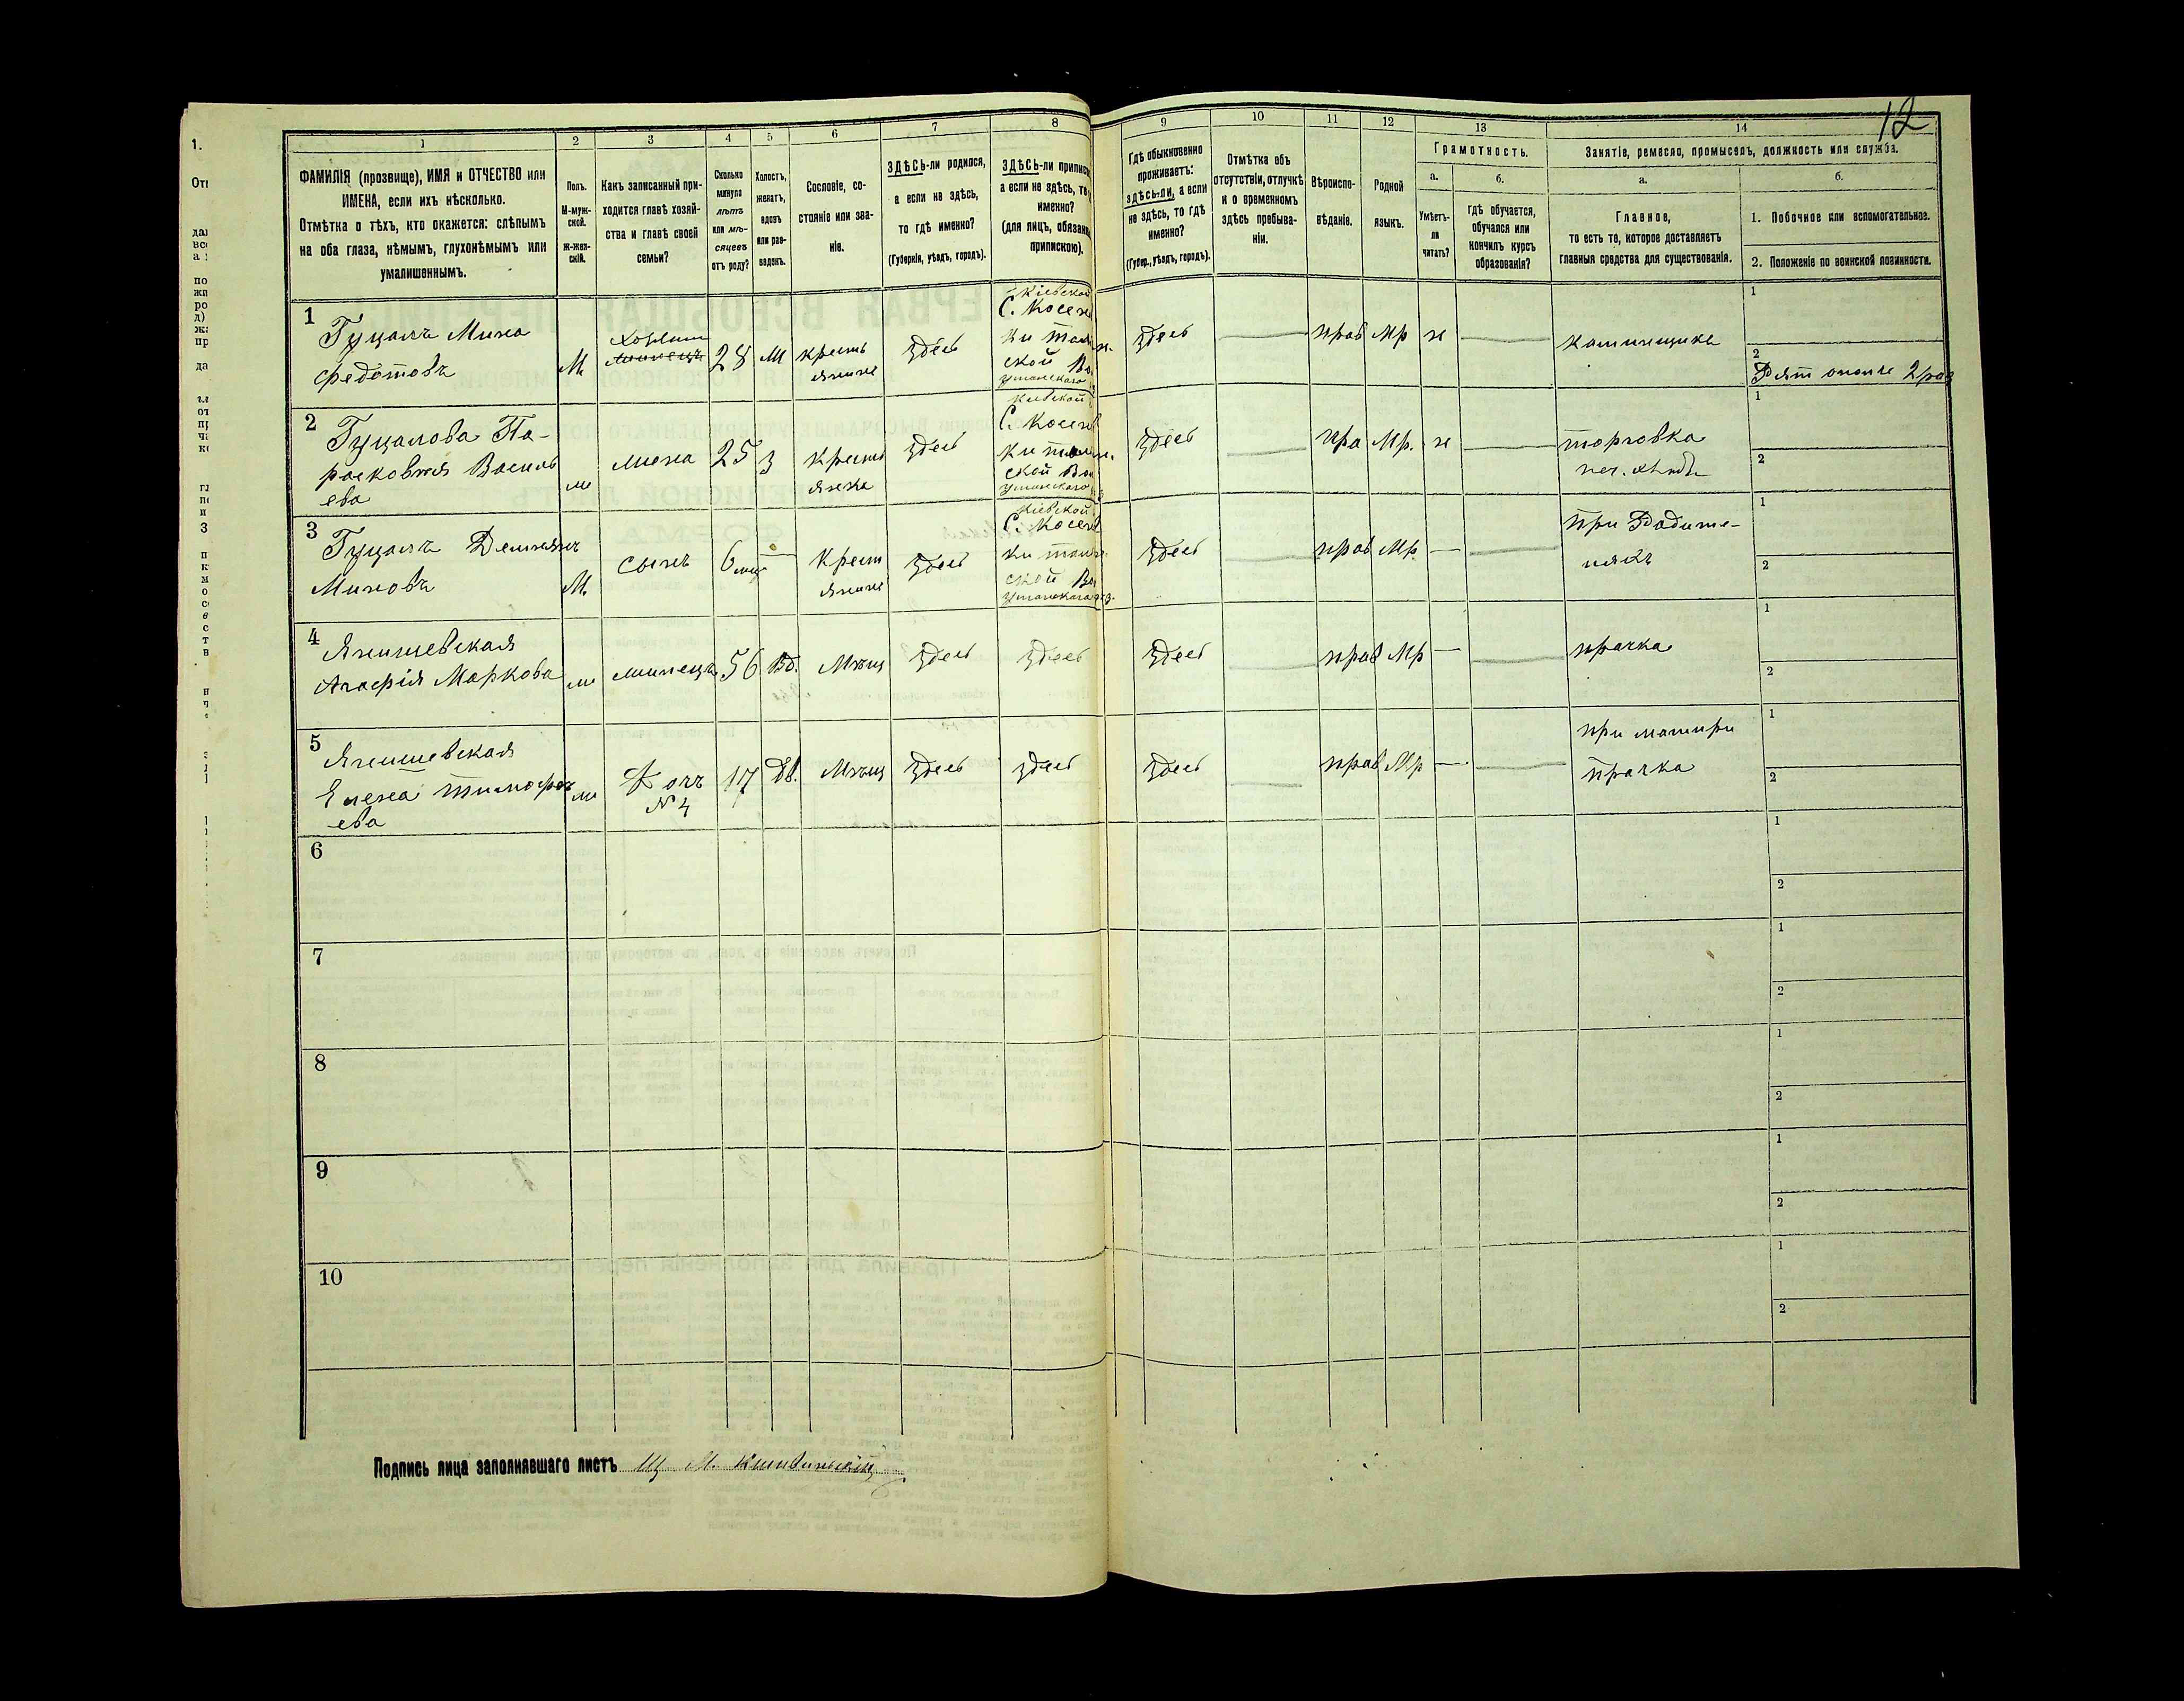 12
1 2 3 4 5 6 7 8 9 10 11 12 13 14
ФАМИЛІЯ (прозвище), ИМЯ и ОТЧЕСТВО или
ИМЕНА, если ихъ нѣсколько.
Отмѣтка о тѣхъ, кто окажется: слѣпымъ
на оба глаза, нѣмымъ, глухонѣмымъ или
умалишеннымъ.
Полъ.
М-муж-
ской.
Ж-жен-
скій.
Какъ записанный при-
ходится главѣ хозяй-
ства и главѣ своей
семьи?
Сколько
минуло
лѣтъ
или мѣ-
сяцевъ
отъ роду?
Холостъ,
женатъ,
вдовъ
или раз-
веденъ.
Сословіе, со-
стояніе или зва-
ніе.
ЗДѢСЬ-ли родился,
а если не здѣсь,
то гдѣ именно?
(Губернія, уѣздъ, городъ).
ЗДѢСЬ-ли приписа
а если не здѣсь, то
именно?
(для лицъ, обязан
припискою).
Гдѣ обыкновенно
проживаетъ:
здѣсь-ли, а если
не здѣсь, то гдѣ
именно?
(Губер., уѣздъ, городъ).
Отмѣтка объ
отсутствіи, отлучкѣ
и о временномъ
здѣсь пребыва-
ніи.
Вѣроиспо-
вѣданіе.
Родной
языкъ.
Грамотность.
а.
Умѣетъ-
ли
читать?
б.
Гдѣ обучается,
обучался или
кончилъ курсъ
образованія?
Занятіе, ремесло, промыселъ, должность или служба.
а.
Главное,
то есть то, которое доставляетъ
главныя средства для существованія.
б.
1. Побочное или вспомогательное.
2. Положеніе по воинской повинности.
1
Гуцалъ Мина
Федотовъ
М
28
М
кресть
янинъ
здесь
Кіевской
С. Косен
ки таль
ской Во
Уманского
здесь
прав
Мр
н
каминщикъ
1
2
2
Гуцалова Па-
расковия Василь
ева
жена
25
З
Крест
янка
здесь
Кіевской
С. Косен
ки таль
ской Во
Уманского
здесь
пра
Мр.
н
торговка
1
2
3
Гуцалъ Демьянъ
Миновъ
М
сынъ
6 мец
—
Крест
янинъ
здесь
Кіевской
С. Косен
ки таль
ской Во
Уманского
здесь
прав
Мр.
—
при Родите-
ляхъ
1
2
4
Янишевская
Агафія Маркова
жилецъ
56
Вд.
Мѣщ
здесь
здесь
здесь
прав
Мр
—
прачка
1
2
5
Янишевская
Елена Тимофе
ева
Дочь
№ 4
17
Дв.
Мѣщ
здесь
здесь
здесь
прав
Мр
—
при матири
прачка
1
2
6
1
2
7
1
2
8
1
2
9
1
2
10
1
2
Подпись лица заполнявшаго листъ